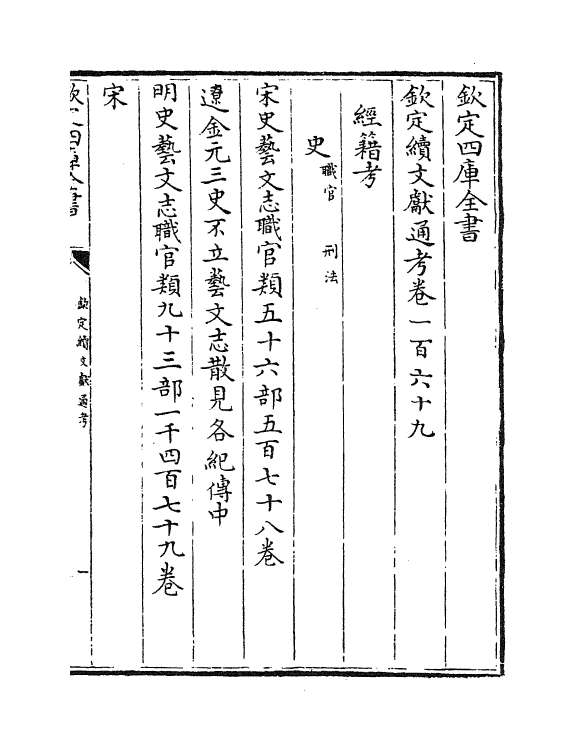 欽定四庫全書
欽定續文獻通考卷一百六十九
經籍考
史 職官 刑法
宋史藝文志職官類五十六部五百七十八卷
遼金元三史不立藝文志散見各紀傳中
明史藝文志職官類九十三部一千四百七十九卷
宋
欽定四庫全書
欽定續文獻通考
一